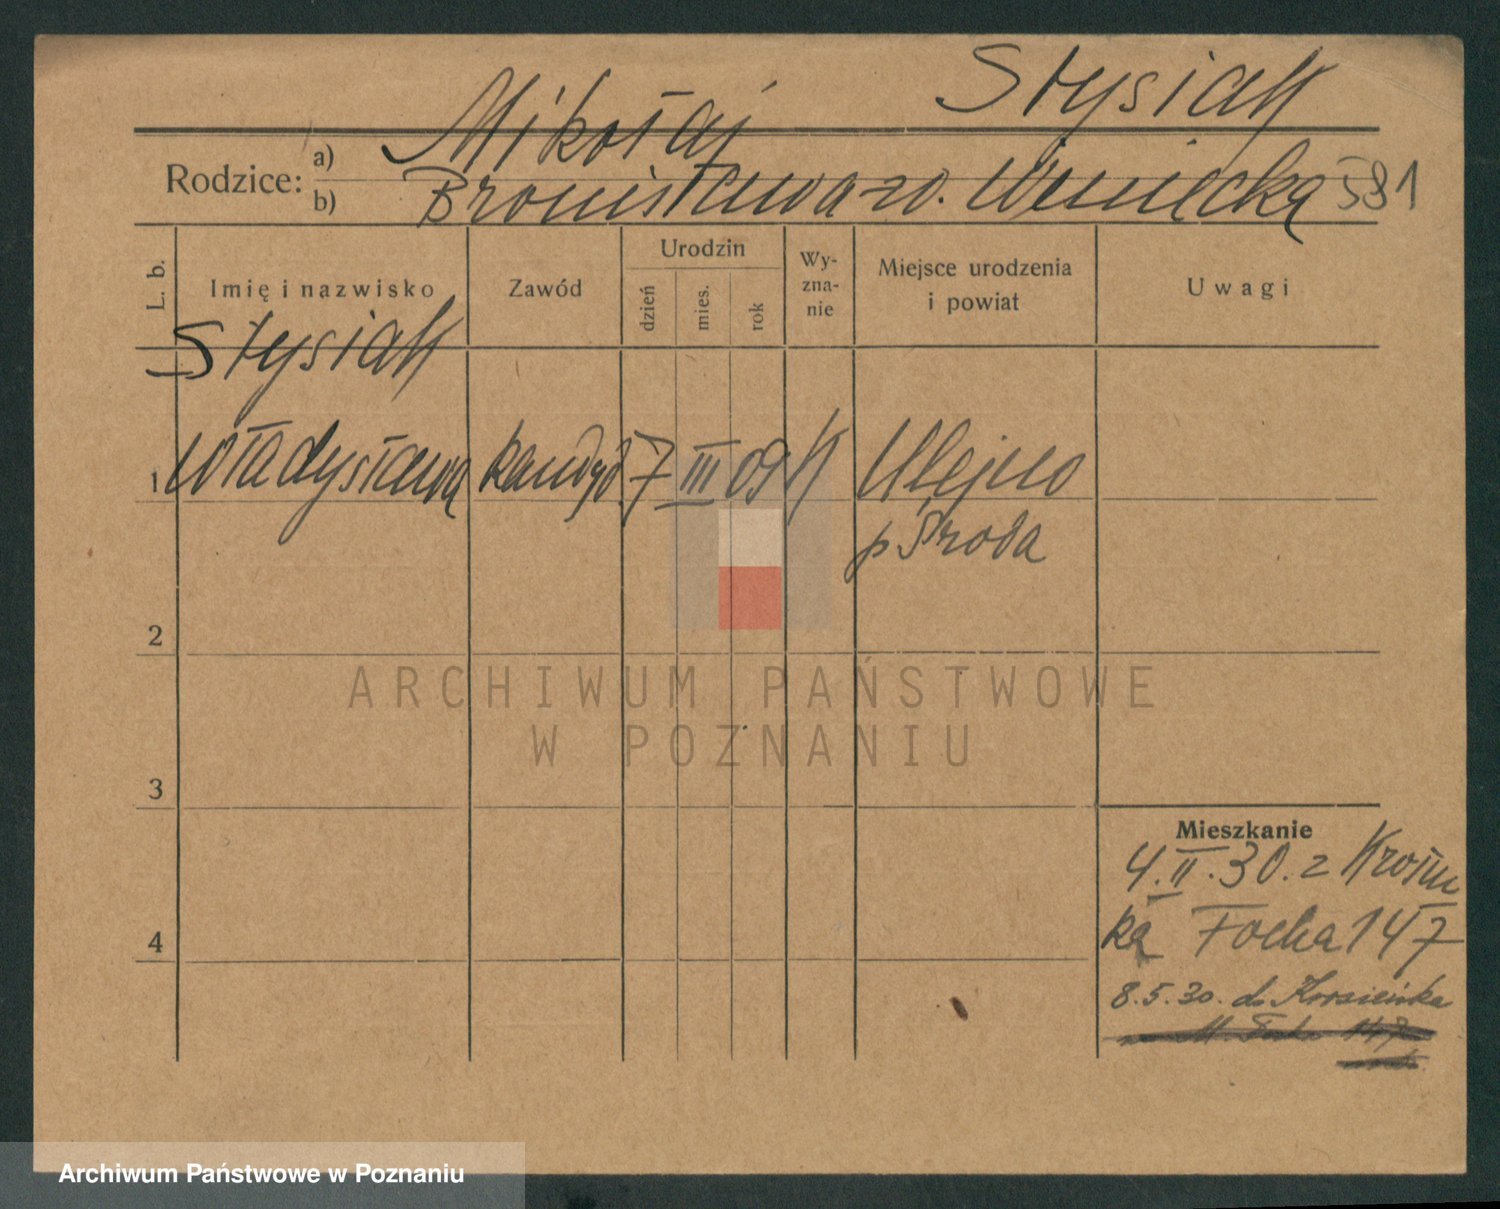 Stysiak
Rodzice: a) Mikołaj
b) Bronisława zd. Winiecka 581
L. b. Imię i nazwisko Zawód Urodzin dzień mies. rok Wy-zna-nie Miejsce urodzenia i powiat Uwagi
Stysiak
1 Władysława kandyd. 7 III 09 K Ulejno
p Środa
2
ARCHIWUM PAŃSTWOWE
W POZNANIU
3
Mieszkanie
4.II.30. z
ka Focha 147
4
8.5.30. do
Archiwum Państwowe w Poznaniu